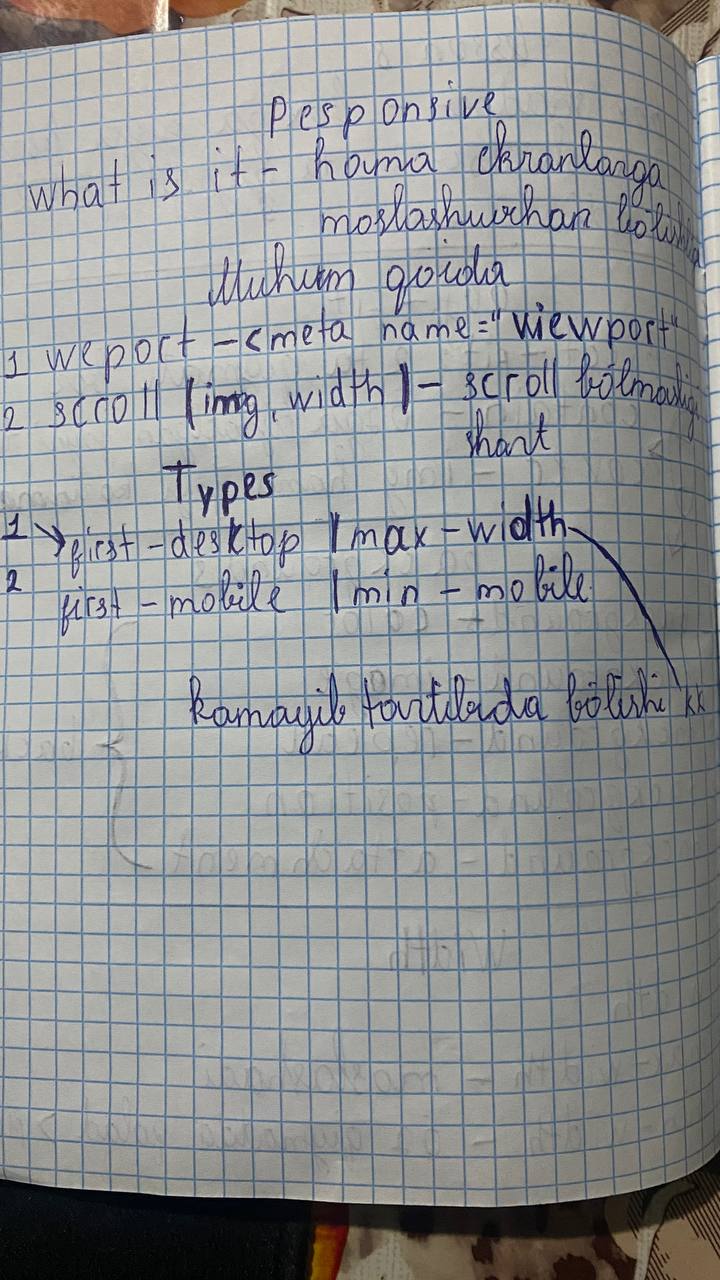 Responsive
what is it - hama ekranlarga
moslashuvchan bõlishi
Muhum qoida
1 weport - <meta name="viewport"
2 scroll (img, width) - scroll bõlmasligi
shart
Types
1 first - desktop | max - width
2 first - mobile | min - mobile
kamayib tartibda bõlishi kk